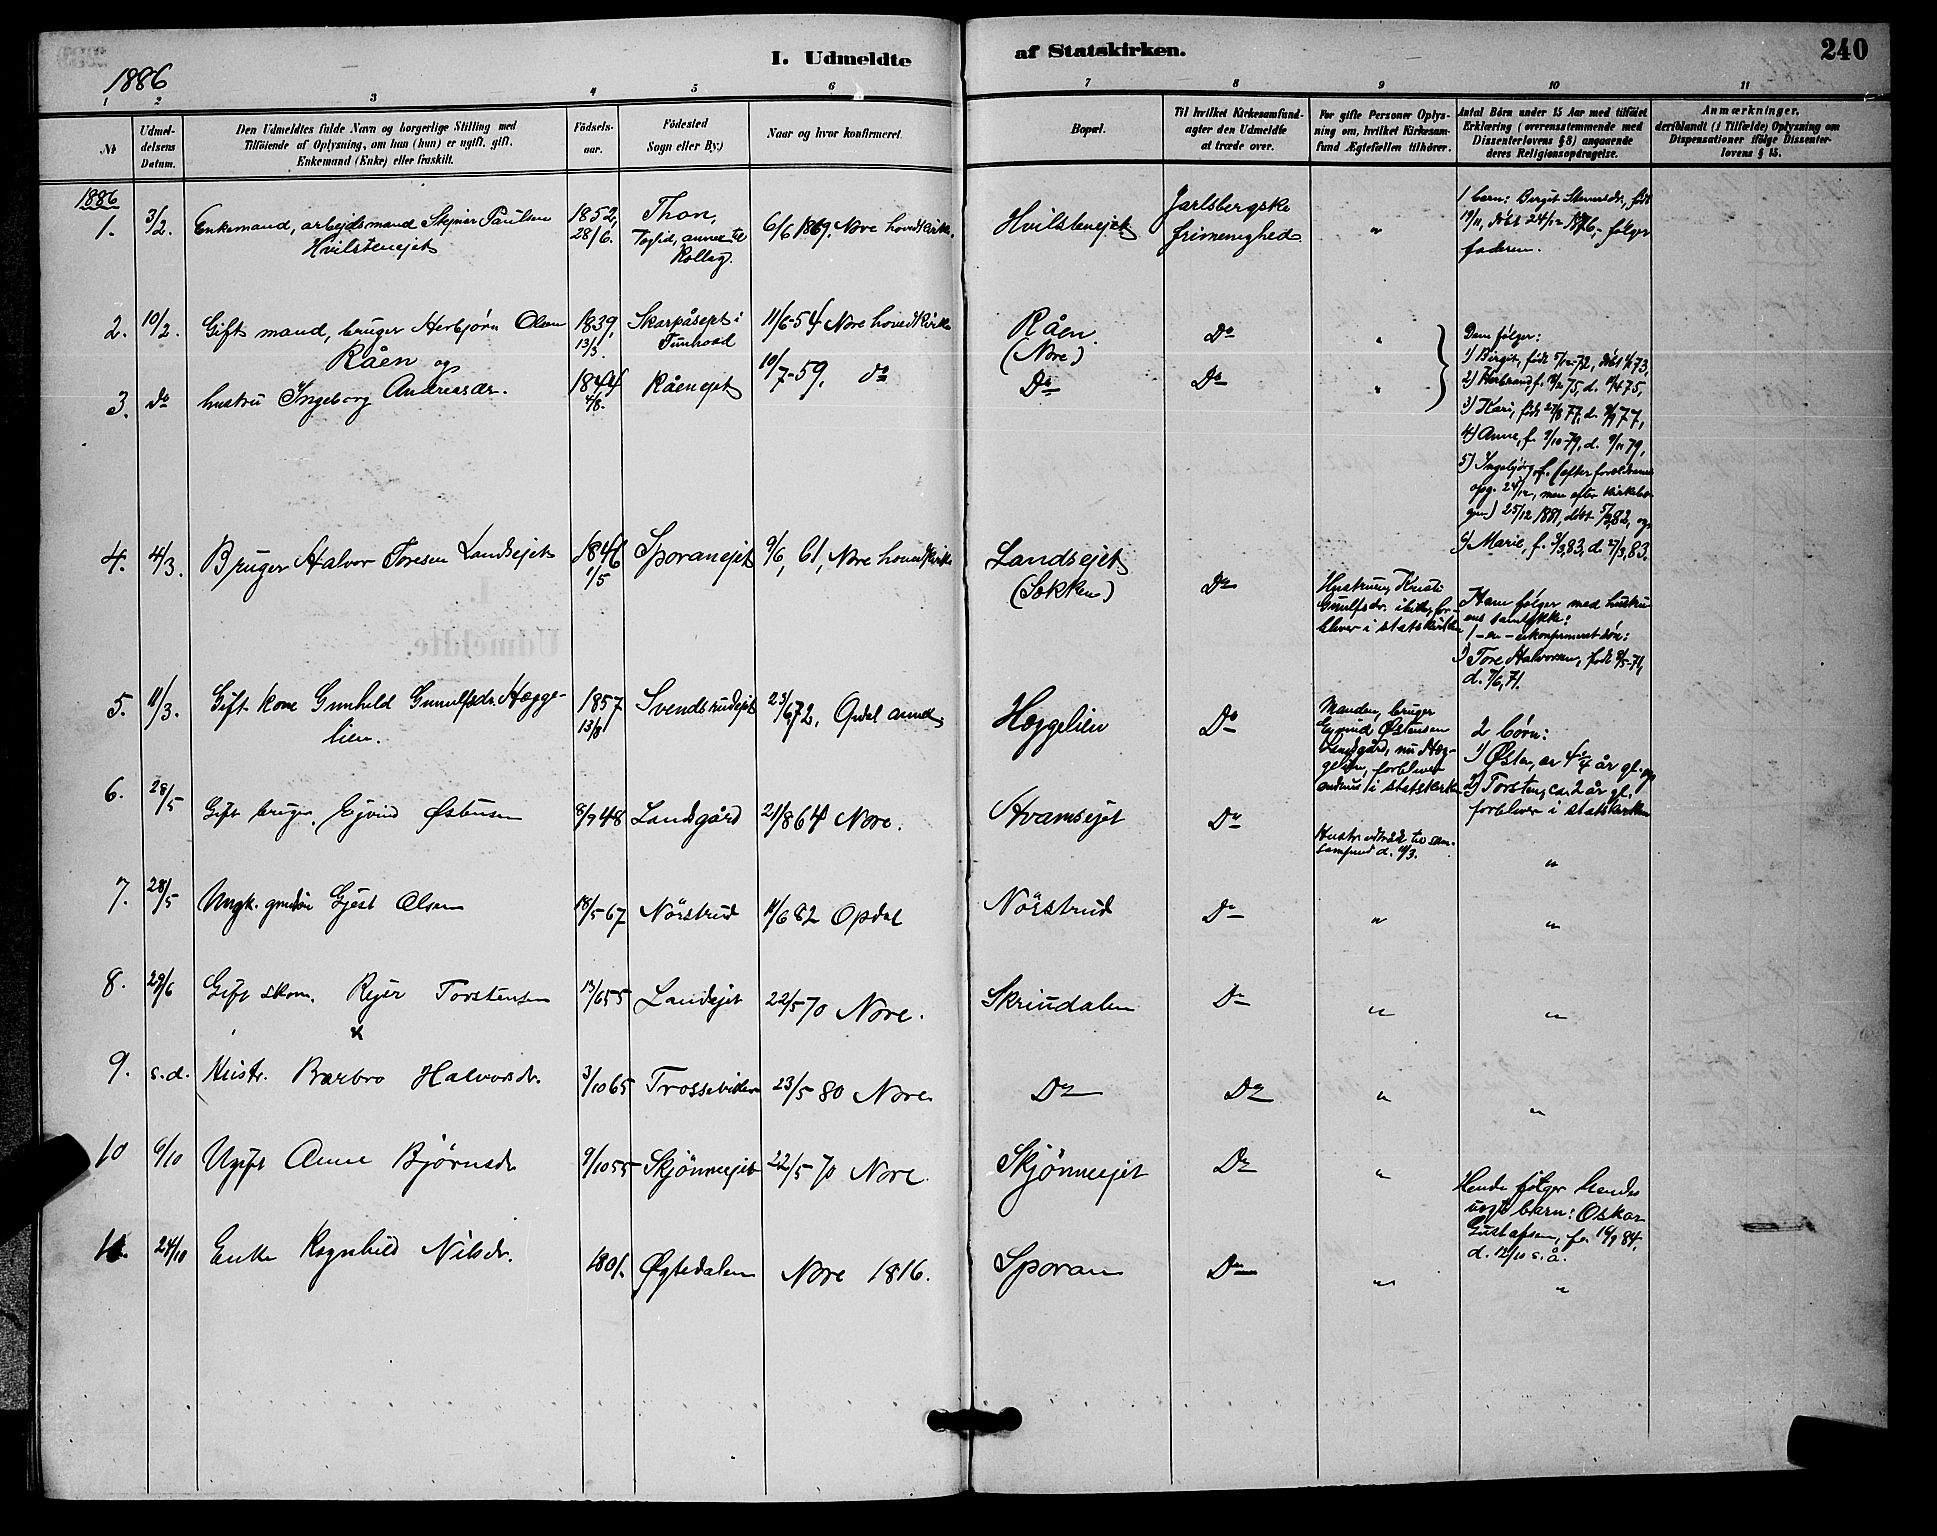 I. Udmeldte af Statskirken.
240
1886
1 2 3 4 5 6 7 8 9 10 11
Nt
Udmel-
delsens
Datum.
Den Udmeldtes fulde Navn og borgerlige Stilling med
Tilföiende af Oplysning, om han (hun) er ugift, gift,
Enkemand (Enke) eller fraskilt.
Födsels-
aar.
Födested
Sogn eller By.)
Naar og hvor konfirmeret.
Bopæl.
Til hvilket Kirkesamfund-
agter den Udmeldte
at træde over.
For gifte Personer Oplys-
ning om, hvilket Kirkesam-
fund Ægtefællen tilhörer.
Antal Börn under 15 Aar med tilföiet
Erklæring (overensstemmende med
Dissenterlovens § 8) angaaende
deres Religionsopdragelse.
Anmærkninger,
deriblandt (i Tilfælde) Oplysning om
Dispensationer ifölge Dissenter-
lovens § 15.
1886
1. 3/2. Enkemand, arbejdsmand Stejnar Paulsen
Hvilstenejet
1852, 28/6.
Thon,
annex til
Rollag.
6/6 1869. Nore hovedkirke.
Hvilstenejet
Jarlsbergske
frimenighed
"
1 barn: Birgit Steinersdr., født
19/11, døbt 24/12 1876, følger
faderen.
2. 10/2. Gift mand, bruger Herbjørn Olsen
Råen og
1839, 13/3.
Skarpåsejet i
Tunhovd
11/6-54 Nore hovedkirke
Råen.
(Nore)
Do
"
3. Do hustru Ingeborg Andreasdr.
1844 4/8.
Råenejet
10/7-59, do
Do
Do
"
Dem følger:
1) Birgit, født 5/12-72, døbt 1/73,
2) Herbrand f. 75, d. 75,
3) Kari, født 27/8 77, d. 9/9 77,
4) Anne, f. 9/10-79, d. 9/11 79,
5) Ingebjørg, f. (efter forældrenes
opg. 24/12, men efter kirkebo-
gen) 25/12 1881, døbt 5/3 82, og
6) Marie, f. 3/3 83, d. 27/3 83.
4. 4/3. Bruger Halvor Toresen Landsejet
1846 1/5
Sporanejet
9/6, 61, Nore hovedkirke
Landsejet
(Søkken)
Do
Hustruen, Kristi
Gunulfsdr. ibid., for-
bliver i statskirken
Ham følger med hustru-
ens samtykke:
1 - en - ukonfirmeret søn:
1) Tore Halvorsen, født 9/5-71,
d. 7/6, 71.
5. 11/3. Gift kone Gunhild Gunulfsdr. Hægge-
lien.
1857 13/8
Svendsrudejet
23/6 72, Opdal annex
Hæggelien
Do
Manden, bruger
Ejvind Østensen
Landsgård, nu Hæg-
gelien, forbliver
i statskirken
2 børn:
1) Østen, er 4 1/4 år gl. og
2) Torsten, ca. 2 år gl.
forbliver i statskirken
6. 28/5 Gift bruger Ejvind Østensen
8/9 48
Landsgård
21/8 64 Nore.
Hvamsejet
Do
Hustr. udtrådt
samfund d. 11/3.
"
7. 28/5 Ungk. Gjest Olsen
18/5-67
Nörstrud
11/6 82 Opdal
Nörstrud
Do
"
"
8. 29/6 Gift skom. Rejer Torstensen
13/6 55
Landsejet
22/5 70 Nore.
Skriudalen
Do
"
"
9. s.d. Hustr. Barbro Halvorsdr.
3/10 65
Trossevidden
23/5 80 Nore
Do
Do
"
"
10 6/10 Ugift Anne Bjørnsdr
9/10 55
Skjönneejet
22/5 70 Nore
Skjönneejet
Do
"
Hende følger hendes
uægte barn: Oskar
Gustafsen, f. 14/9 84.
d. 12/10 s. å.
11. 24/10 Enke Ragnhild Nilsdr.
1801.
Øgtedalen
Nore 1816.
Sporan
Do
"
"